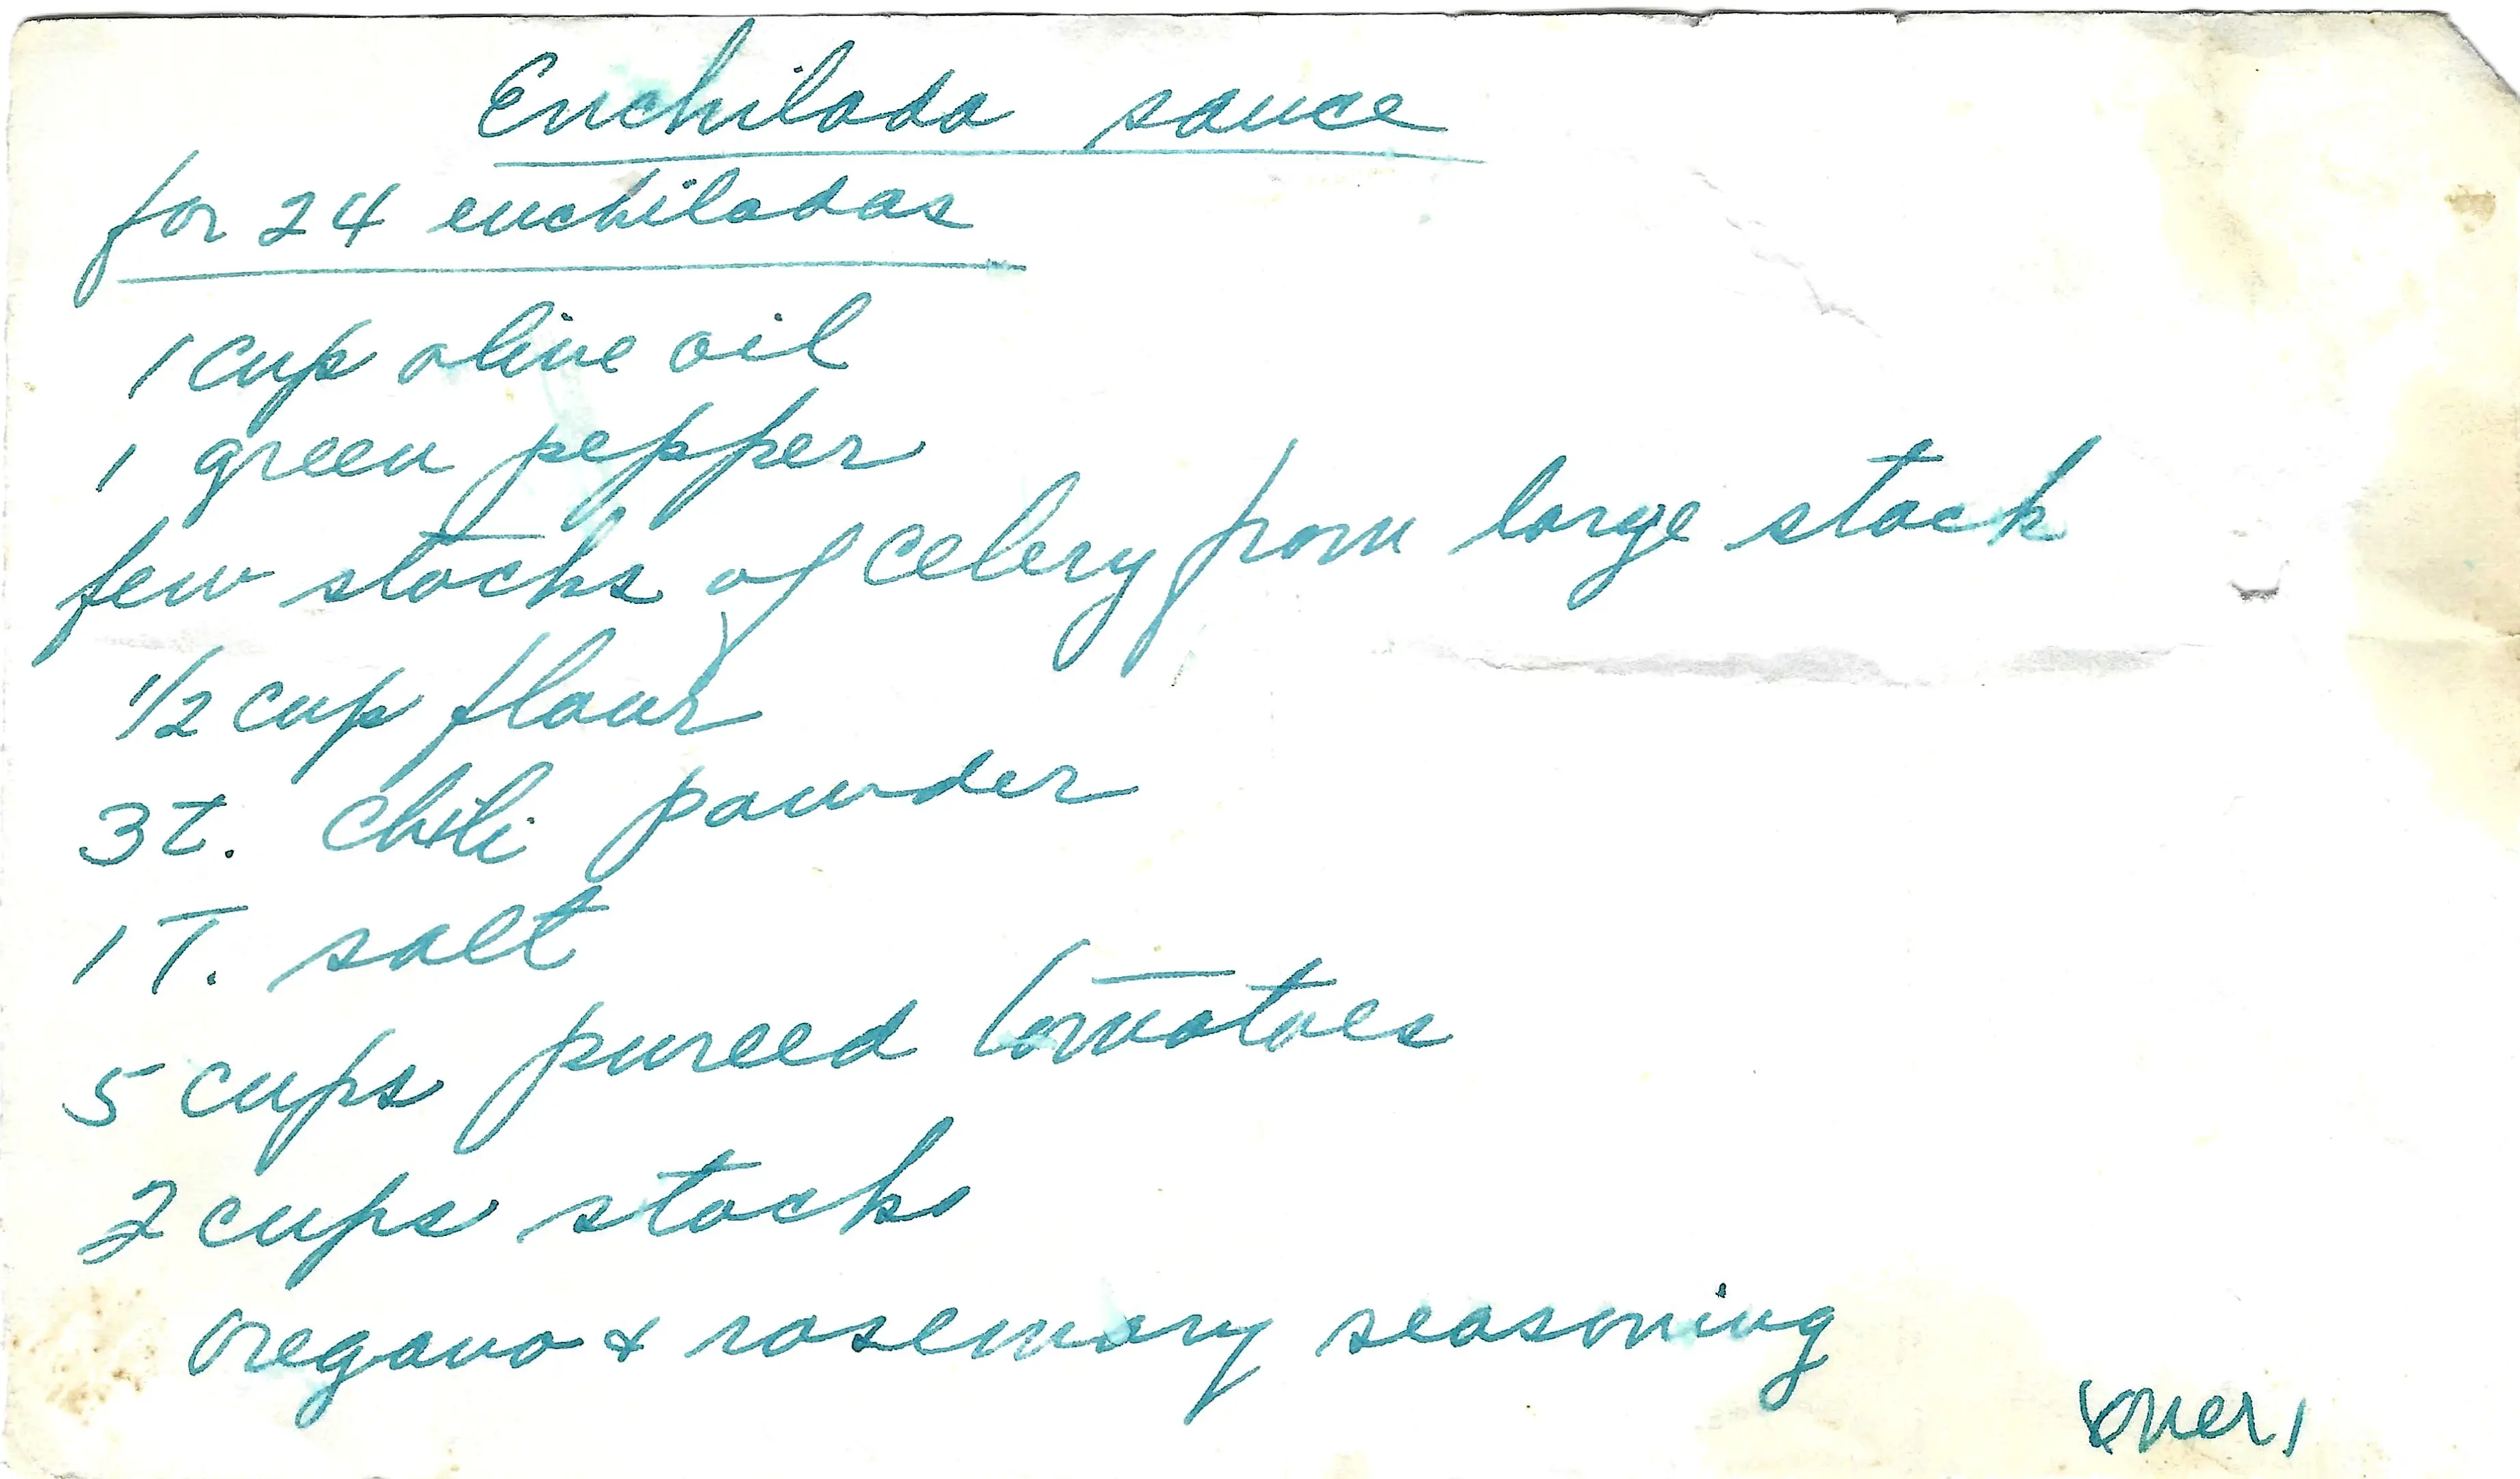 Enchilada sauce
for 24 enchiladas
1 cup olive oil
1 green pepper
few stocks of celery from large stock
1/2 cup flour
3 T. chili powder
1 T. salt
5 cups pureed tomatoes
2 cups stocks
oregano & rosemary seasoning
(over)